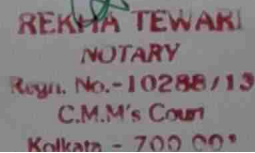 REKHA TEWARI
NOTARY
Regn. No.-10288/13
C.M.M's Court
Kolkata - 700 001